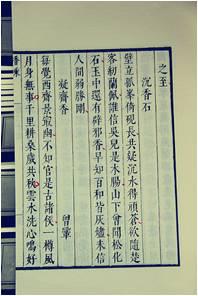 之至
沉香石
壁立孤峯倚硯長共疑沉水得頑蒼欲隨楚
客紉蘭佩誰信吳兒是木腸山下曾聞松化
石玉中還有辟邪香早知百和皆灰燼未信
人間弱勝剛
凝齋香 曾鞏
每覺西齋景最幽不知官是古諸侯一樽風
月身無事千里耕桑歲共秋雲水洗心鳴好